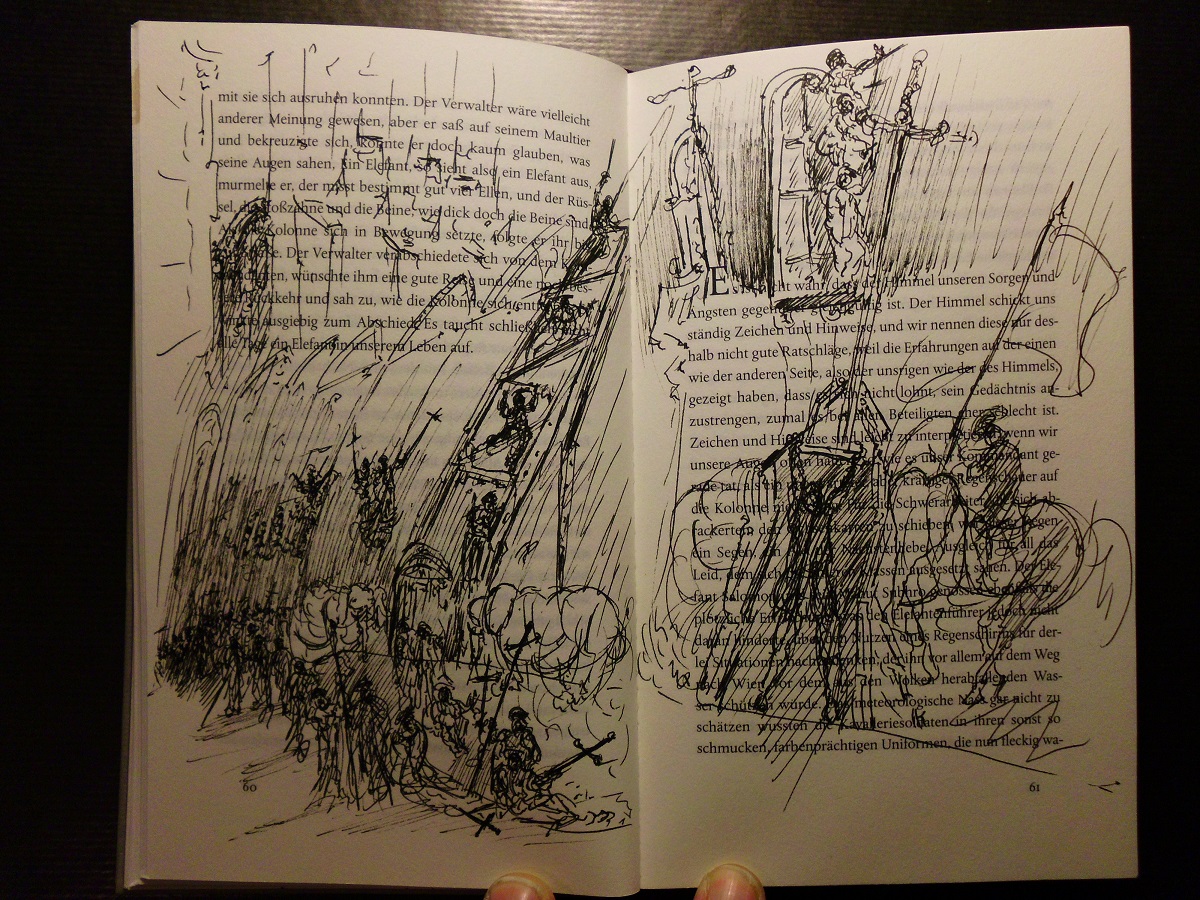 mit sie sich ausruhen konnten. Der Verwalter wäre vielleicht
anderer Meinung gewesen, aber er saß auf seinem Maultier
und bekreuzigte sich, konnte er doch kaum glauben, was
seine Augen sahen. Ein Elefant, so sieht also ein Elefant aus,
murmelte er, der misst bestimmt gut vier Ellen, und der Rüs-
sel, die Stoßzähne und die Beine, wie dick doch die Beine sind.
Als die Kolonne sich in Bewegung setzte, folgte er ihr bis
Straße. Der Verwalter verabschiedete sich von dem
wünschte ihm eine gute Reise und eine
Rückkehr und sah zu, wie die Kolonne sich
ausgiebig zum Abschied. Es taucht schließlich nicht
alle Tage ein Elefant in unserem Leben auf.
60
Es ist nicht wahr, dass der Himmel unseren Sorgen und
Ängsten gegenüber gleichgültig ist. Der Himmel schickt uns
ständig Zeichen und Hinweise, und wir nennen diese nur des-
halb nicht gute Ratschläge, weil die Erfahrungen auf der einen
wie der anderen Seite, also der unsrigen wie der des Himmels,
gezeigt haben, dass es sich nicht lohnt, sein Gedächtnis an-
zustrengen, zumal es bei allen Beteiligten eher schlecht ist.
Zeichen und Hinweise sind leicht zu interpretieren, wenn wir
unsere Augen offen wie es unser Kommandant ge-
rade tat, als ein aber kräftiger Regenschauer auf
die Kolonne Für die Schwerarbeiter, die sich ab-
rackerten, den Ochsenkarren zu schieben, war der Regen
ein Segen, ein Akt der Nächstenliebe, Ausgleich für all das
Leid, dem sich Klassen ausgesetzt sahen. Der Ele-
fant Salomon und Subhro genossen ebenfalls die
plötzliche was den Elefantenführer jedoch nicht
daran hinderte, über den Nutzen eines Regenschirms für der-
lei Situationen nachzudenken, der ihn vor allem auf dem Weg
nach Wien vor dem aus den Wolken herabfallenden Was-
ser schützen würde. Das meteorologische Nass gar nicht zu
schätzen wussten die Kavalleriesoldaten in ihren sonst so
schmucken, farbenprächtigen Uniformen, die nun fleckig wa-
61